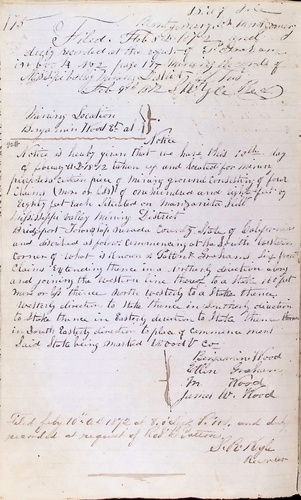 175
Montgomery
Filed Feb 8th 1872 and
duly recorded at the request of
in page 177 Mining Records of
Mississippi Valley Mining District
Feb 9th 1872 S W Pyle Rec
Mining Location
Benjamin Wood et al
Notice
Notice is hereby given that we have this 10th day
of January A.D. 1872 taken up and located for mineral
purposes a certain piece of Mining ground consisting of four
Claims (more or less) of one hundred and eighty feet or
Eighty feet each Situated on Manzanita Hill
Mississippi Valley Mining District
Bridgeport Township Nevada County State of California
and described as follows commencing at the South Western
corner of what is known as Grahams, Six
Claims Extending thence in a Northerly direction along
and joining the Western line thereof to a Stake 160 feet
more or less thence North Westerly to Stake thence
Westerly direction to Stake thence in Southerly direction
to Stake thence in Easterly direction to Stake thence
in South Easterly direction to place of commencement
Said Stakes being marked Wood & Co
Benjamin Wood
Ellen Graham
M. Wood
James W. Wood
Filed July 10th AD 1872 at P.M. and duly
recorded at request of
S. W. Pyle
Recorder